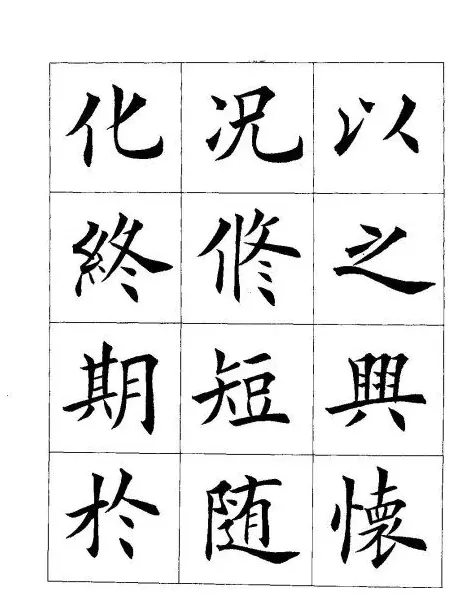 以之興懷
况脩短随
化終期於